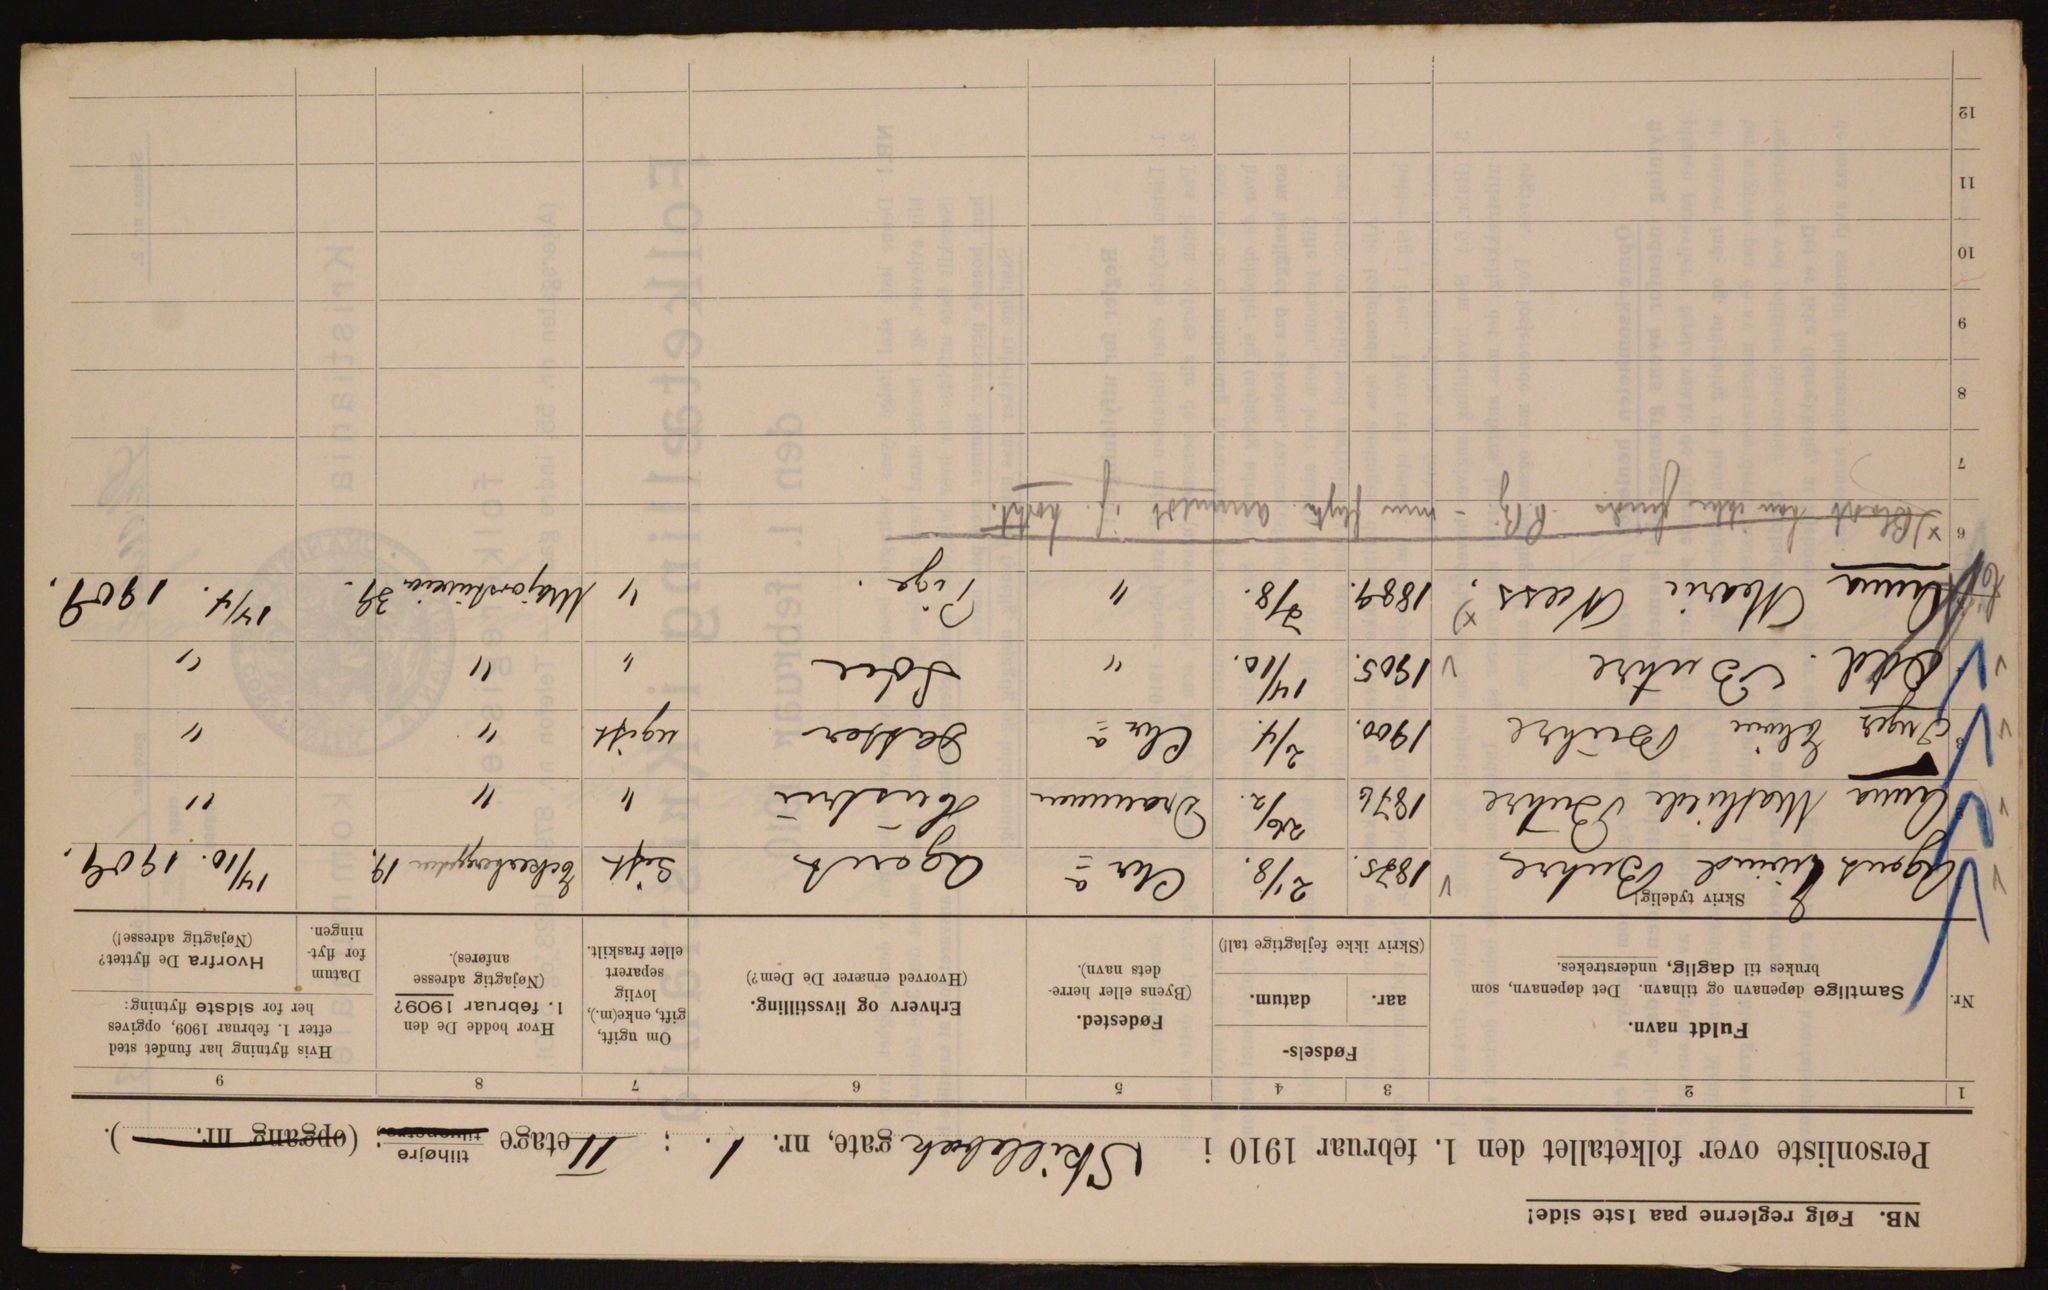 NB. Følg reglerne paa 1ste side!
Personliste over folketallet den 1. februar 1910 i Skillebæk gate, nr. 1. ; II etage tilhøjre tilvenstre; (opgang nr. ).
1 2 3 4 5 6 7 8 9
Nr.
Fuldt navn.
Samtlige døpenavn og tilnavn. Det døpenavn, som
brukes til daglig, understrekes.
Skriv tydelig!
Fødsels-
aar. datum.
(Skriv ikke fejlagtige tal!)
Fødested.
(Byens eller herre-
dets navn).
Erhverv og livsstilling.
(Hvorved ernærer De Dem?)
Om ugift,
gift, enke(m.),
lovlig
separert
eller fraskilt.
Hvor bodde De den
1. februar 1909?
(Nøjagtig adresse
anføres).
Hvis flytning har fundet sted
efter 1. februar, 1909, opgives
her for sidste flytning:
Datum
for flyt-
ningen.
Hvorfra De flyttet?
(Nøjagtig adresse!)
Eivind Buhre 1875. 21/8. Chr a Agent Gift 19. 14/10. 1909.
Anna Mathilde Buhre 1876 26/2. Drammen Hustru " " "
3 Inger Buhre 1900. 2/4. Chr a Datter ugift " "
Odd. Buhre 1905. 14/10. " Søn " " "
Anna Marie Næss. x) 1889. 7/8. " Pige. " Majorstuveien 39. 14/4. 1909.
6 x) kan ikke findes
7
8
9
10
11
12